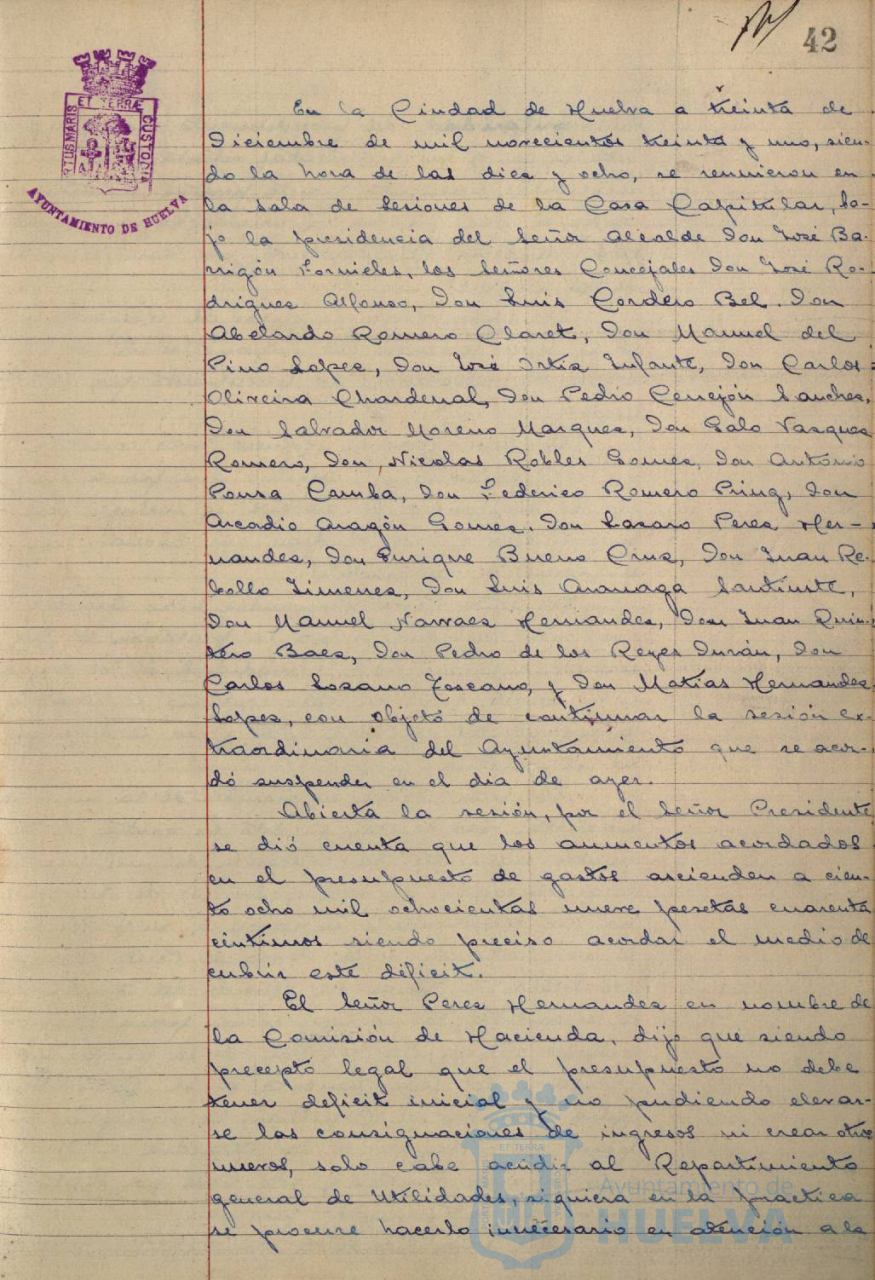 42
PORTUS MARIS ET TERRÆ CUSTODIA
AYUNTAMIENTO DE HUELVA
En la Ciudad de Huelva a treinta de
Diciembre de mil novecientos treinta y uno, sien-
do la hora de las diez y ocho, se reunieron en
la sala de Sesiones de la Casa Capitular, ba-
jo la presidencia del Señor Alcalde Don José Ba-
rrigón Fornieles, los Señores Concejales Don José Ro-
drigues Alfonso, Don Luis Cordero Bel. Don
Abelardo Romero Claret, Don Manuel del
Pino Lopez, Don José Ortiz Infante, Don Carlos
Oliveira Chardenal, Don Pedro Cerrejón Sanchez,
Don Salvador Moreno Marquez, Don Galo Vazquez
Romero, Don Nicolas Robles Gomez, Don Antonio
Ponza Camba, Don Federico Romero Pring, Don
Arcadio Aragón Gomez. Don Lazaro Perez Her-
nandez, Don Enrique Bueno Cruz, Don Juan Re-
bollo Jimenez, Don Luis Aranaga Santiuste,
Don Manuel Narvaez Hernandez, Don Juan Quin-
tero Baez, Don Pedro de los Reyes Durán, Don
Carlos Lozano Toscano, y Don Matías Hernandez
Lopez, con objeto de continuar la sesión ex-
traordinaria del Ayuntamiento que se acor-
dó suspender en el dia de ayer.
Abierta la sesión, por el Señor Presidente
se dió cuenta que los aumentos acordados
en el presupuesto de gastos ascienden a cien-
to ocho mil ochocientas nueve pesetas cuarenta
céntimos siendo preciso acordar el medio de
cubrir este déficit.
El Señor Perez Hernandez en nombre de
la Comisión de Hacienda, dijo que siendo
precepto legal que el presupuesto no debe
tener deficit inicial y no pudiendo elevar-
se las consignaciones de ingresos ni crear otros
nuevos, solo cabe acudir al Repartimiento
general de Utilidades, siquiera en la practica
se procure hacerlo innecesario en atención a la
Ayuntamiento de
HUELVA